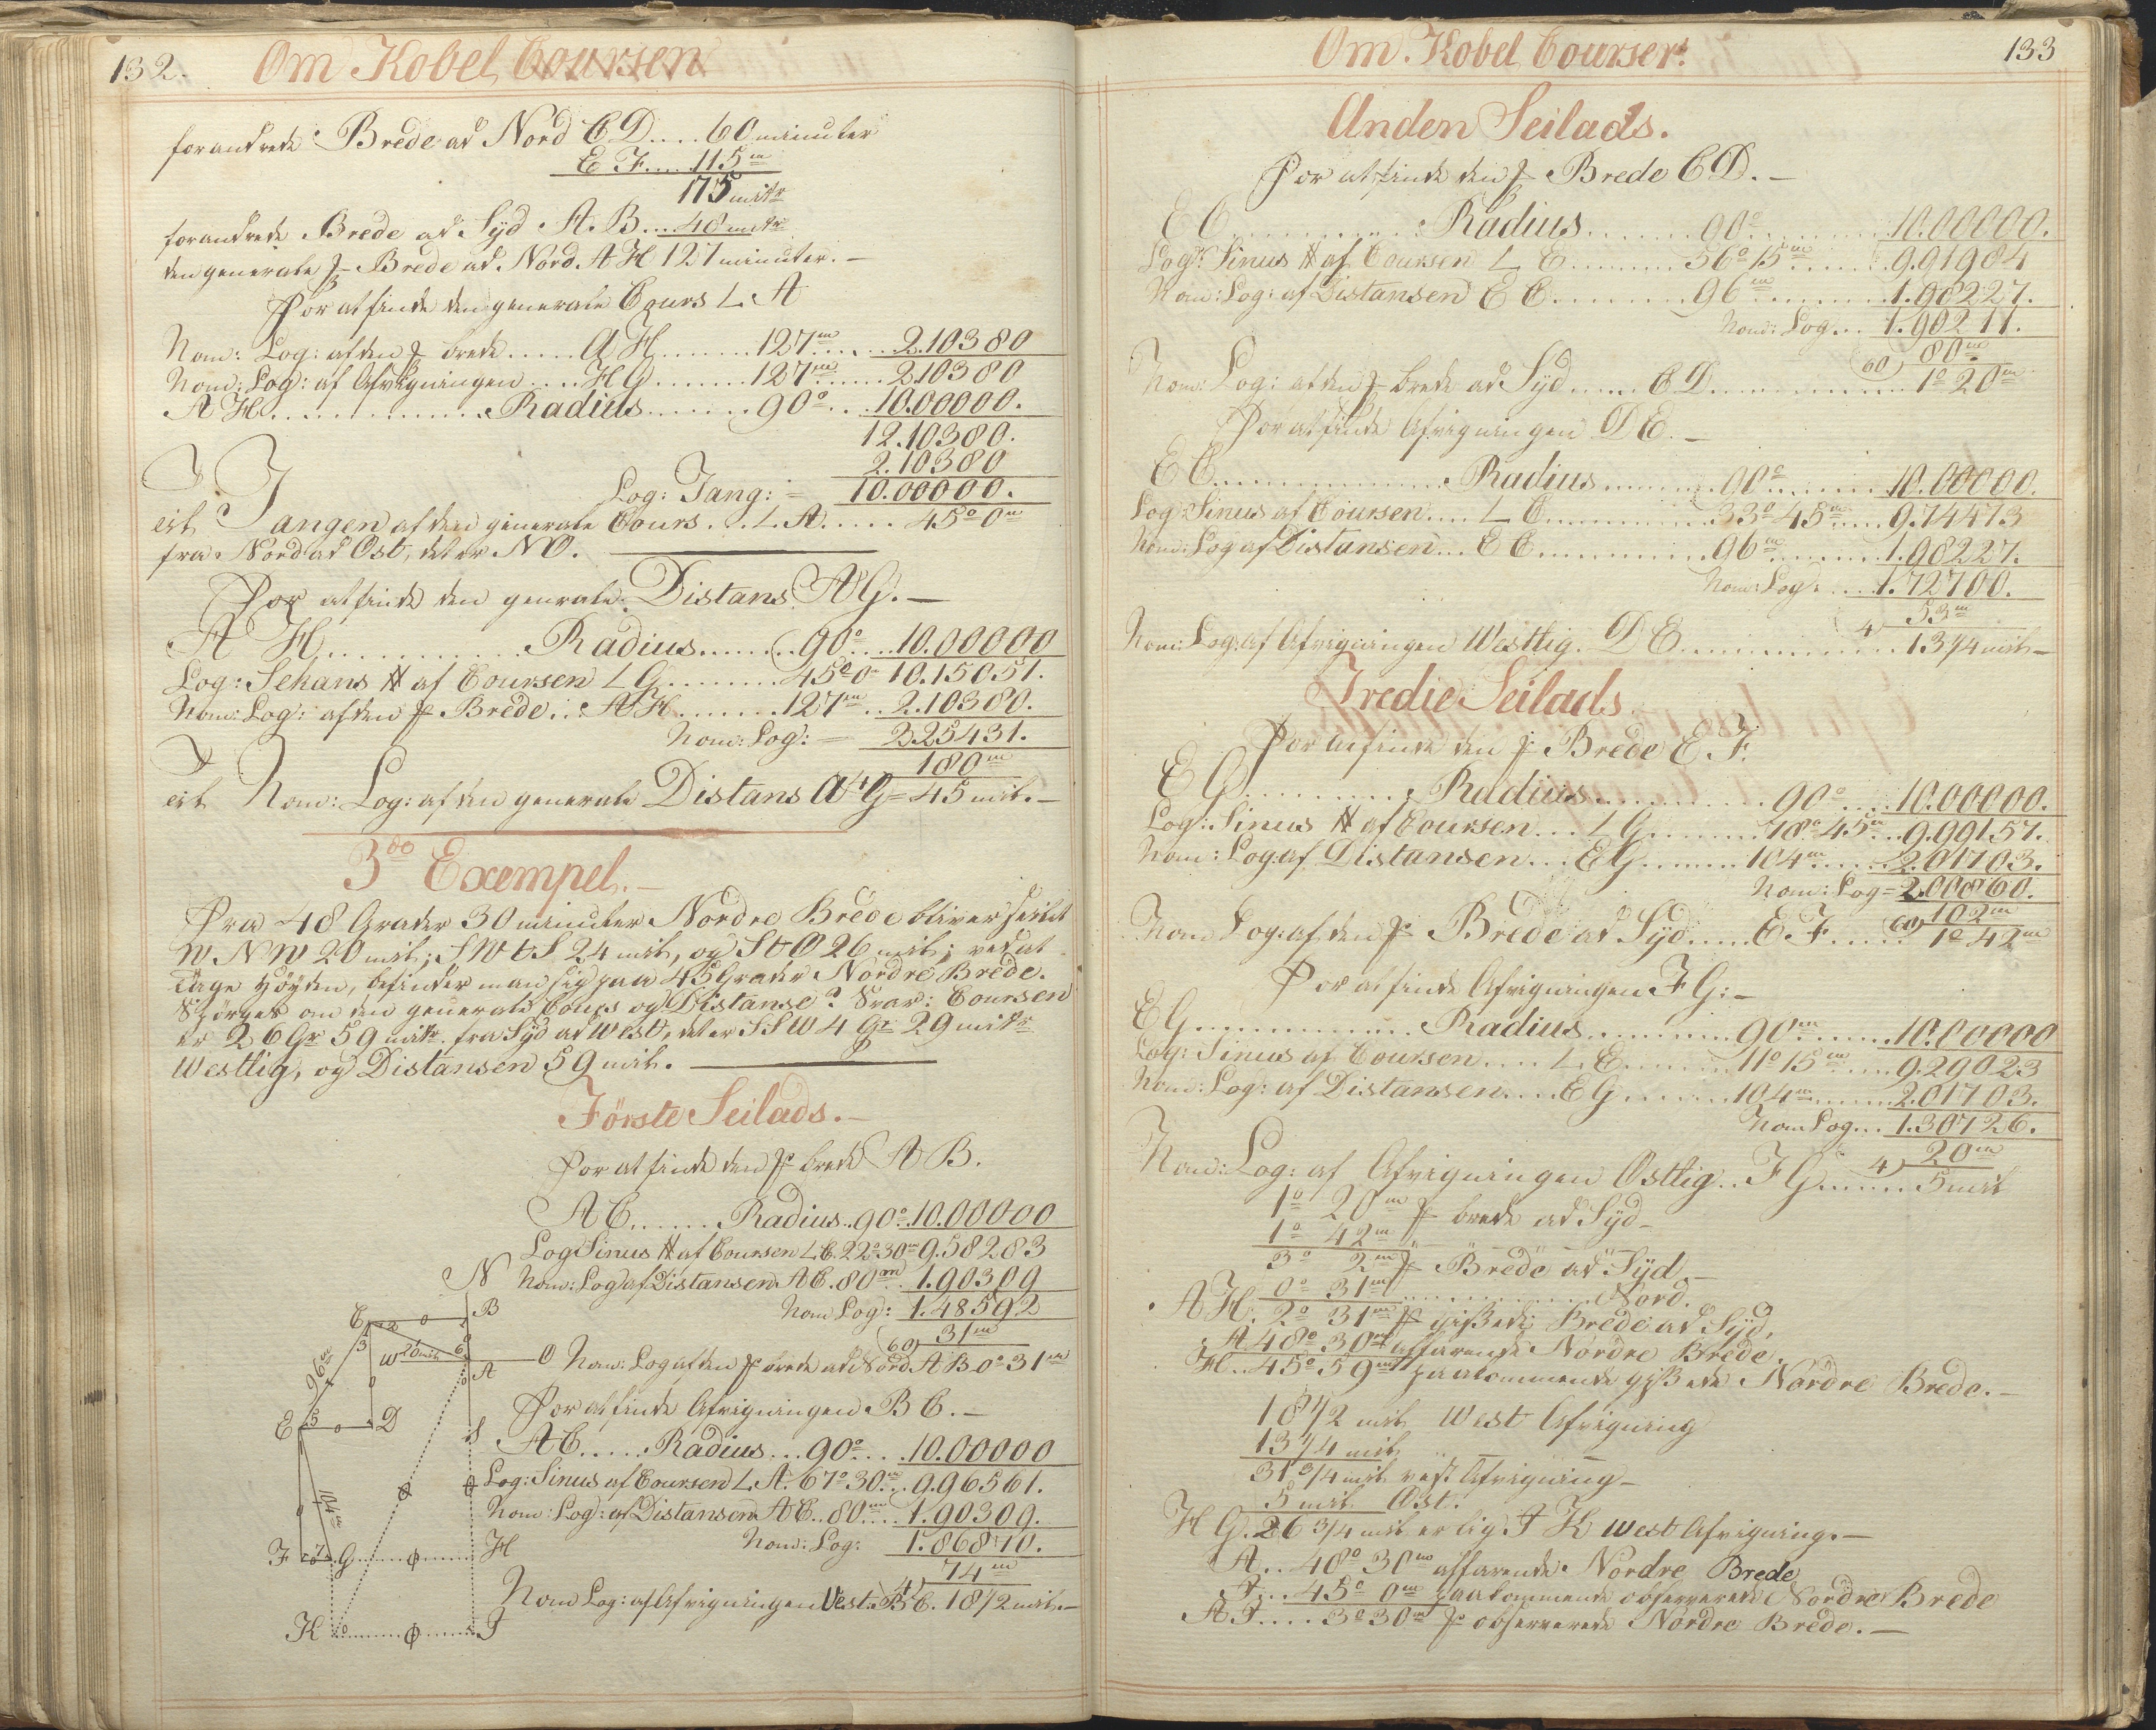 132.
Om Kobel Coursen
forandrede Brede ad Nord C D....60 minuter
E F....115 m
175 mitr
forandrede Brede ad Syd A. B...48 mitr
den generale f- Brede ad. Nord. A H 127 minuter.-
For at finde den generale Cours L. A
Nom: Log: af den f- brede.....A H........127 m......2.10380
Nom: Log: af Afvigningen....H G.......127 m......2.10380
A H................Radius.......90°...10.00000.
12.10380.
2.10380
Log: Tang:- 10.00000.
Tangen af den generale Cours...L. A.....45° 0 m
fra Nord ad Ost, det er N O.
For at finde den genrale Distans A G.-
A H............Radius.......90°...10.00000
Log: Sekans af Coursen L G........45° 0 m 10.15051.
Nom: Log: af den f- Brede...A H.......127 m..2.10380.
Nom: Log:- 2.25431.
180 m
Nom: Log: af den generale Distans A G = 45 mil.-
3do Exempel.-
Fra 48 Grader 30 minuter Nordre Brede bliver seilet
W N W 20 mil; S W t S 24 mil, og S t O 26 mil; ved at
tage Höyden, befinder man sig paa 45 Grader Nordre Brede.
Spörges om den generale Cours og Distanse? Svar: Coursen
er 26 Gr 59 mitr. fra Syd ad West, det er S S W 4 Gr 29 mitr
Westlig, og Distansen 59 mil.
Förste Seilads.-
For at finde den f- brede A B.
A C......Radius..90°..10.00000
Log Sinus af Coursen L C. 22° 30 m 9.58283
Nom: Log af Distansen A C. 80 m..1.90309
Nom Log: 1.48592
60) 31 m
Nom: Log af den f- brede ad Nord A B 0° 31 m
For at finde Afvigningen B C.-
A C.....Radius...90°...10.00000
Log: Sinus af Coursen L. A. 67° 30 m..9.96561.
Nom: Log: af Distansen A C..80 m...1.90309.
Nom: Log: 1.86870.
4) 74 m
Nom Log: af Afvigningen Vest. B C. 18 1/2 mil.-
N
C
B
W 20 mil
O
A
96 m
E
D
S
104 m
F
G
H
K
I
133
Om. Kobel Courser.
Anden Seilads.
For at finde den f- Brede C D.-
E C.............Radius.......90°.........10.00000.
Log: Sinus af Coursen L E........56° 15 m......9.91984
Nom: Log: af Distansen E C.........96 m..........1.98227.
Nom: Log... 1.90211.
60) 80 m
Nom: Log: af den f- brede ad Syd.....C D...............1° 20 m
For at finde Afvigningen D E.-
E C................Radius........90°........10.00000.
Log: Sinus af Coursen....L C...........33° 45 m....9.74473
Nom: Log af Distansen...E C...........96 m........1.98227.
Nom: Log:....1.72700.
4) 53 m
Nom: Log: af Afvigningen Westlig. D E..............13 1/4 mil-
Tredie Seilads
For at finde den f- Brede E. F.
E G...........Radius...........90°....10.00000.
Log: Sinus af Coursen...L G.......78° 45 m..9.99157.
Nom: Log: af Distansen...E G.......104 m.....2.01703.
Nom: Log = 2.00860.
60) 102 m
Nom Log: af den f- Brede ad Syd.....E. F......1° 42 m
For at finde Afvigningen F G:-
E G..............Radius.........90 m.......10.00000
Log: Sinus af Coursen....L. E.......11° 15 m....9.29023
Nom: Log: af Distansen....E G......104 m.......2.01703.
Nom Log...1.30726.
4) 20 m
Nom: Log: af Afvigningen Ostlig..F G......5 mil
1° 20 m f- brede ad Syd-
1° 42 m " " "
3° 2 m f- Brede ad Syd.-
0° 31 m..............Nord.
A H. 2° 31 m f- gissede Brede ad Syd,
A. 48° 30 m affarende Nordre Brede.
H..45° 59 m paakommende gissede Nordre Brede.-
18 1/2 mil West Afvigning
13 1/4 mil " "
31 3/4 mil vest Afvigning-
5 mil Ost.
H G. 26 3/4 mil er lig I K west Afvigning.-
A...48° 30 m affarende Nordre Brede
I...45° 0 m paakommende observerede Nordre Brede
A I....3° 30 m f- observerede Nordre Brede.-